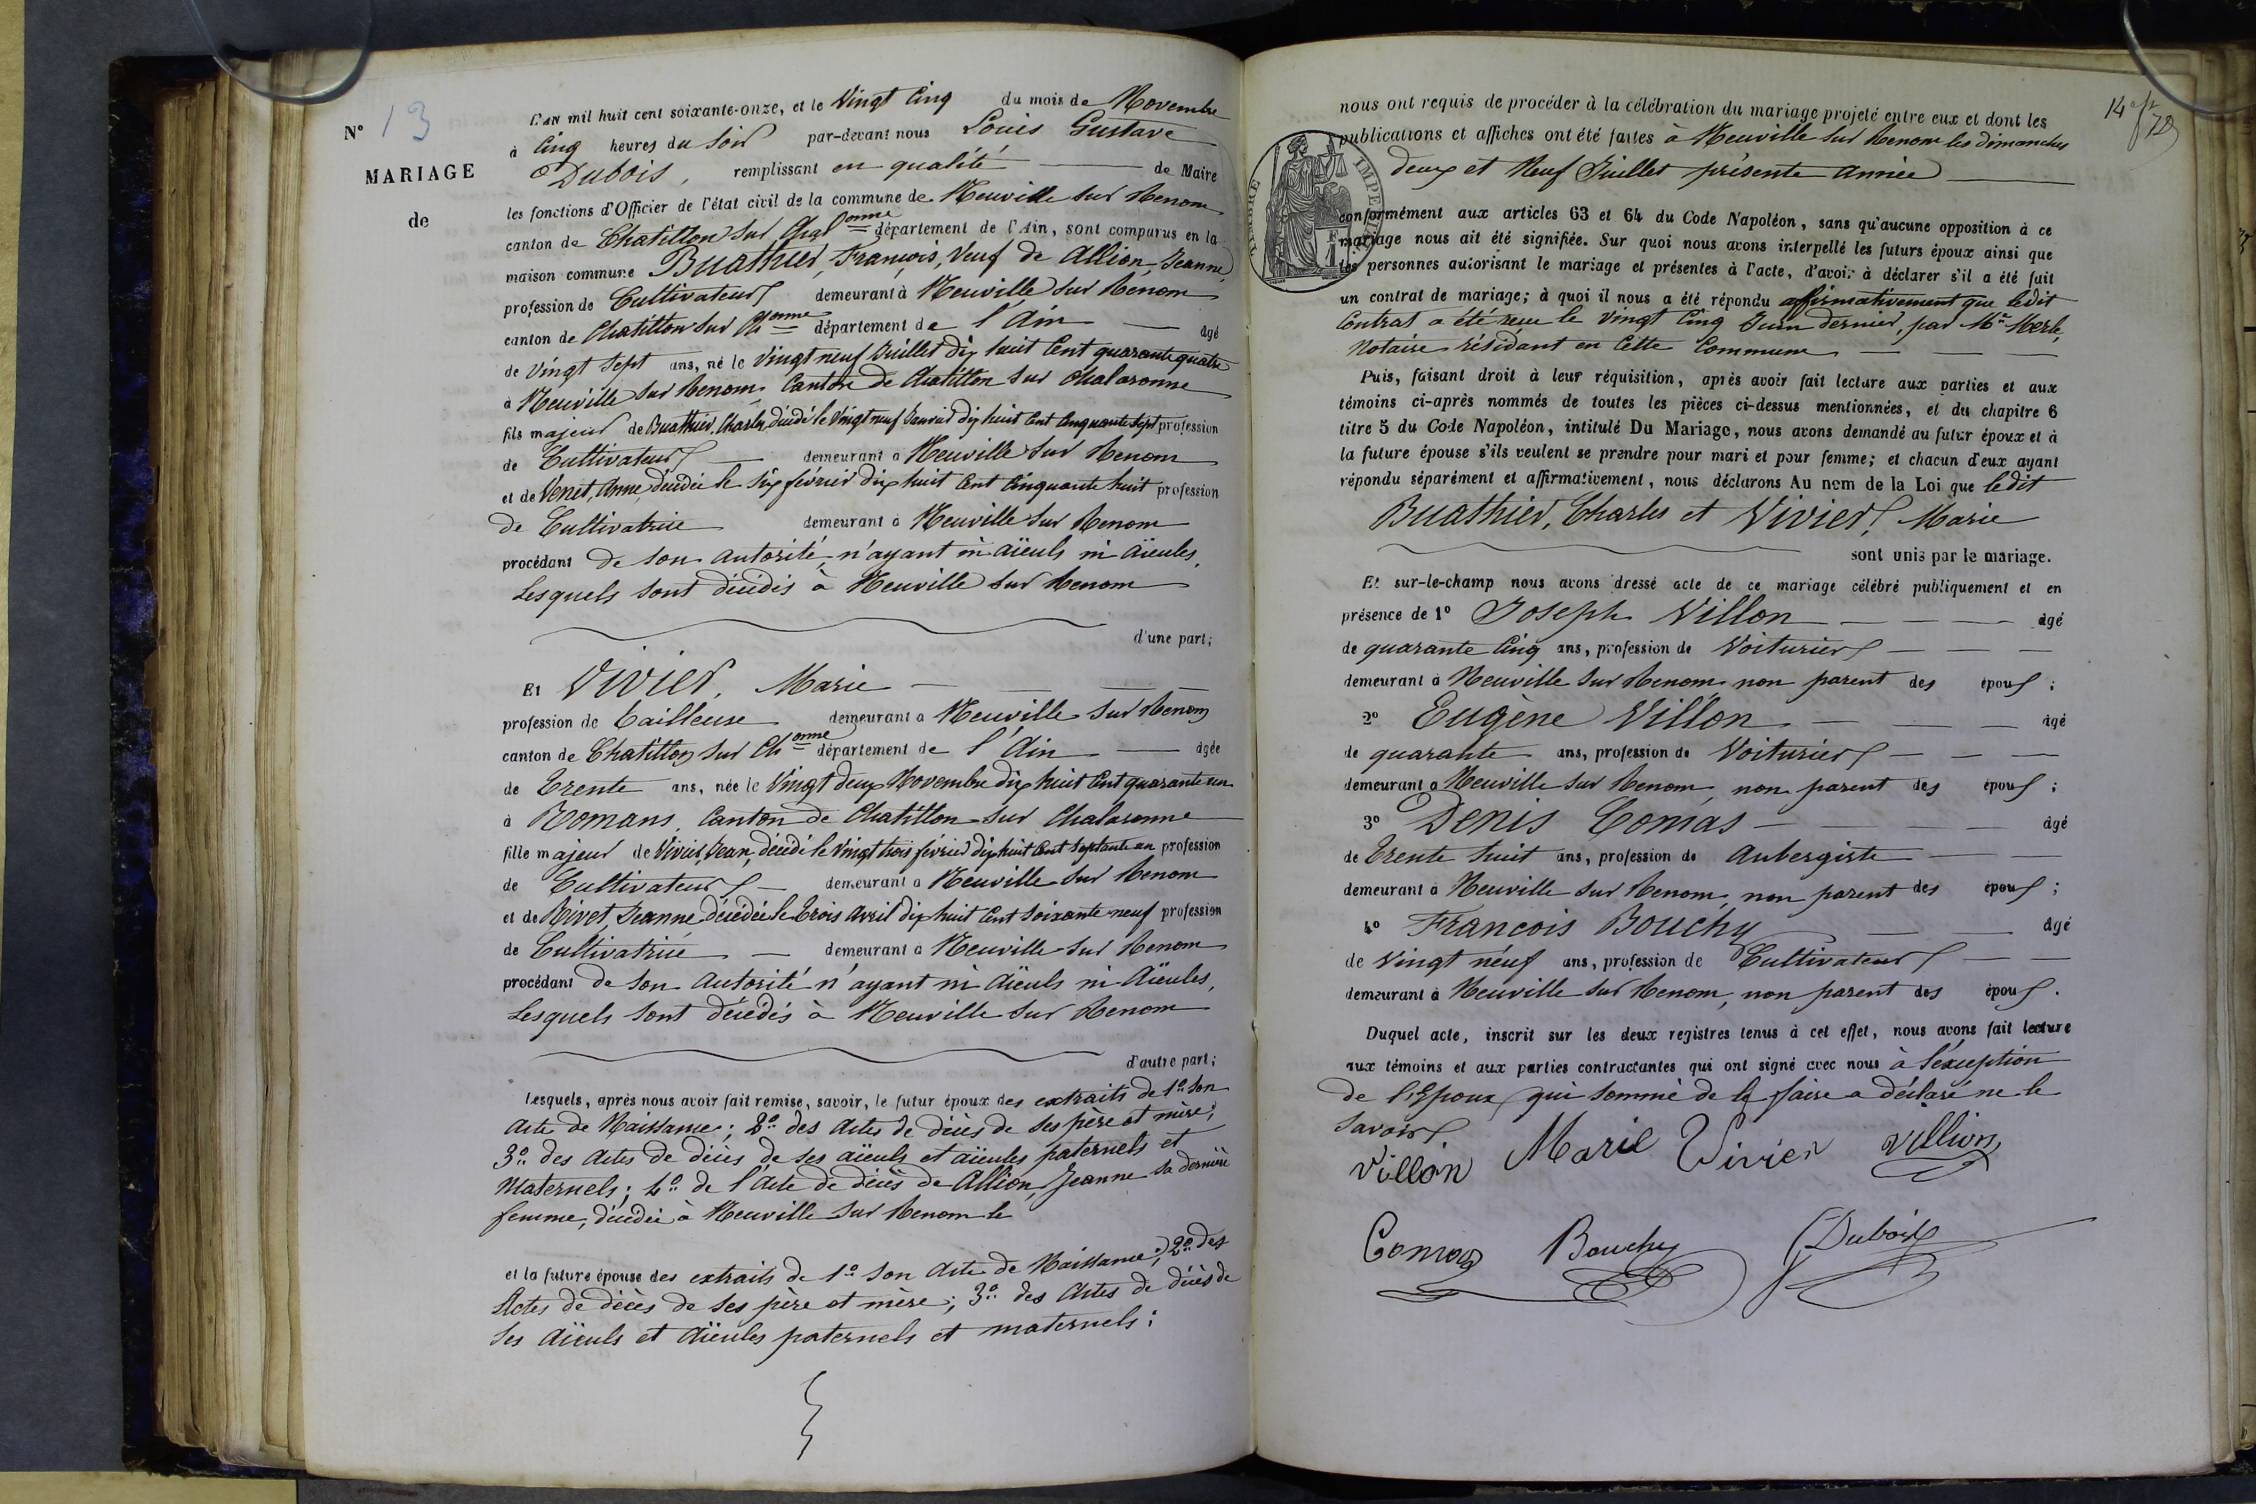 N° 13
MARIAGE
de
L'AN mil huit cent soixante-onze, et le Vingt Cinq du mois de Novembre
à Cinq heures du Soir par-devant nous Louis Gustave
Dubois, remplissant en qualité de Maire
les fonctions d'Officier de l'état civil de la commune de Neuville sur Renom
canton de Chatillon sur Chalonne département de l'Ain, sont comparus en la
maison commune Buathier, François, Veuf de Allion, Jeanne
profession de Cultivateur demeurant à Neuville sur Renom
canton de Chatillon sur Chonne département de l'Ain âgé
de Vingt Sept ans, né le Vingt neuf Juillet dix huit Cent quarante quatre
à Neuville sur Renom, Canton de Chatillon sur Chalaronne
fils majeur de Buathier, Charles, décédé le Vingt neuf Janvier dix huit Cent Cinquante Sept profession
de Cultivateur demeurant à Neuville sur Renom
et de Venet, Anne, décédée le six février dix huit Cent Cinquante huit profession
de Cultivatrice demeurant à Neuville sur Renom
procédant de son autorité, n'ayant ni aïeuls ni aïeules,
Lesquels sont décédés à Neuville sur Renom
d'une part;
Et Vivier, Marie
profession de Tailleuse demeurant à Neuville sur Renom
canton de Chatillon sur Chonne département de l'Ain âgée
de Trente ans, née le Vingt deux Novembre dix huit Cent quarante un
à Romans, Canton de Chatillon sur Chalaronne
fille majeur de Vivier, Jean, décédé le Vingt trois février dix huit Cent Septante un profession
de Cultivateur demeurant à Neuville sur Renom
et de Rivet, Jeanne, décédée le Trois Avril dix huit Cent Soixante neuf profession
de Cultivatrice demeurant à Neuville sur Renom
procédant de son autorité n'ayant ni aïeuls ni Aïeules,
Lesquels sont décédés à Neuville sur Renom
d'autre part;
Lesquels, après nous avoir fait remise, savoir, le futur époux des extraits de 1° Son
Acte de Naissance; 2° des Actes de décès de ses père et mère;
3° des Actes de décès de ses aïeuls et aïeules paternels et
Maternels; 4° de l'Acte de décès de Allion, Jeanne sa dernière
femme, décédée à Neuville sur Renom le
et la future épouse des extraits de 1° Son Acte de Naissance; 2° des
Actes de décès de ses père et mère; 3° des Actes de décès de
Ses Aïeuls et Aïeules paternels et maternels;
14
nous ont requis de procéder à la célébration du mariage projeté entre eux et dont les
publications et affiches ont été faites à Neuville sur Renom les dimanches
deux et Neuf Juillet présente Année
conformément aux articles 63 et 64 du Code Napoléon, sans qu'aucune opposition à ce
mariage nous ait été signifiée. Sur quoi nous avons interpellé les futurs époux ainsi que
les personnes autorisant le mariage et présentes à l'acte, d'avoir à déclarer s'il a été fait
un contrat de mariage; à quoi il nous a été répondu affirmativement que ledit
Contrat a été reçu le Vingt Cinq Juin dernier, par Me Merle,
Notaire résidant en Cette Commune
Puis, faisant droit à leur réquisition, après avoir fait lecture aux parties et aux
témoins ci-après nommés de toutes les pièces ci-dessus mentionnées, et du chapitre 6
titre 5 du Code Napoléon, intitulé Du Mariage, nous avons demandé au futur époux et à
la future épouse s'ils veulent se prendre pour mari et pour femme; et chacun d'eux ayant
répondu séparément et affirmativement, nous déclarons Au nom de la Loi que ledit
Buathier, Charles et Vivier, Marie
sont unis par le mariage.
Et sur-le-champ nous avons dressé acte de ce mariage célébré publiquement et en
présence de 1° Joseph Villon âgé
de quarante Cinq ans, profession de Voiturier
demeurant à Neuville sur Renom, non parent des époux;
2° Eugène Villon âgé
de quarante ans, profession de Voiturier
demeurant à Neuville sur Renom, non parent des époux;
3° Denis Comas âgé
de Trente huit ans, profession de Aubergiste
demeurant à Neuville sur Renom, non parent des époux;
4° François Bouchy âgé
de Vingt neuf ans, profession de Cultivateur
demeurant à Neuville sur Renom, non parent des époux.
Duquel acte, inscrit sur les deux registres tenus à cet effet, nous avons fait lecture
aux témoins et aux parties contractantes qui ont signé avec nous à l'exception
de l'Epoux, qui sommé de le faire a déclaré ne le
Savoir.
Villon Marie Vivier Villion
Comas Bouchy Dubois